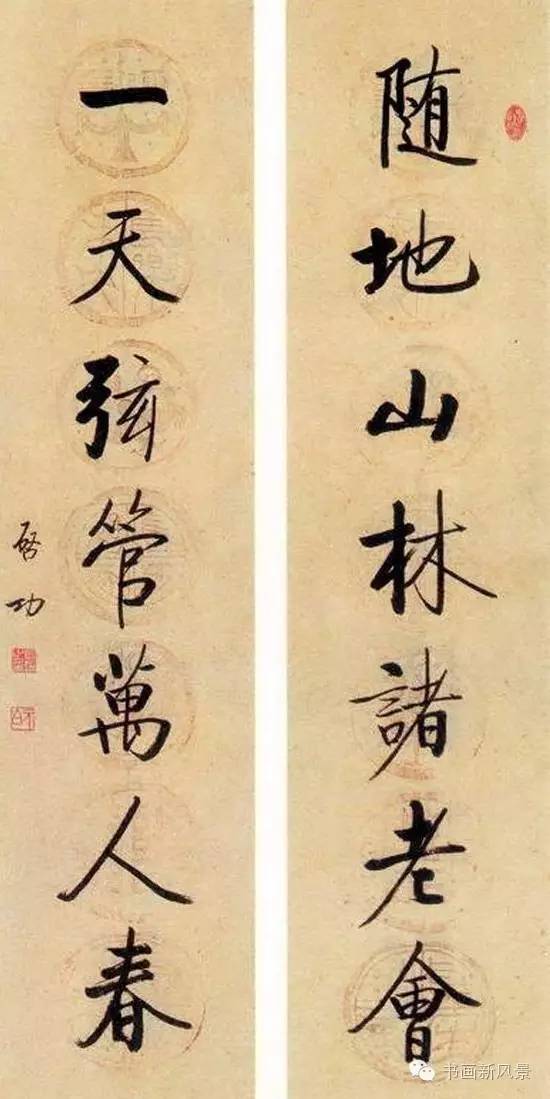 随地山林諸老會
一天弦管萬人春
啓功
书画新风景